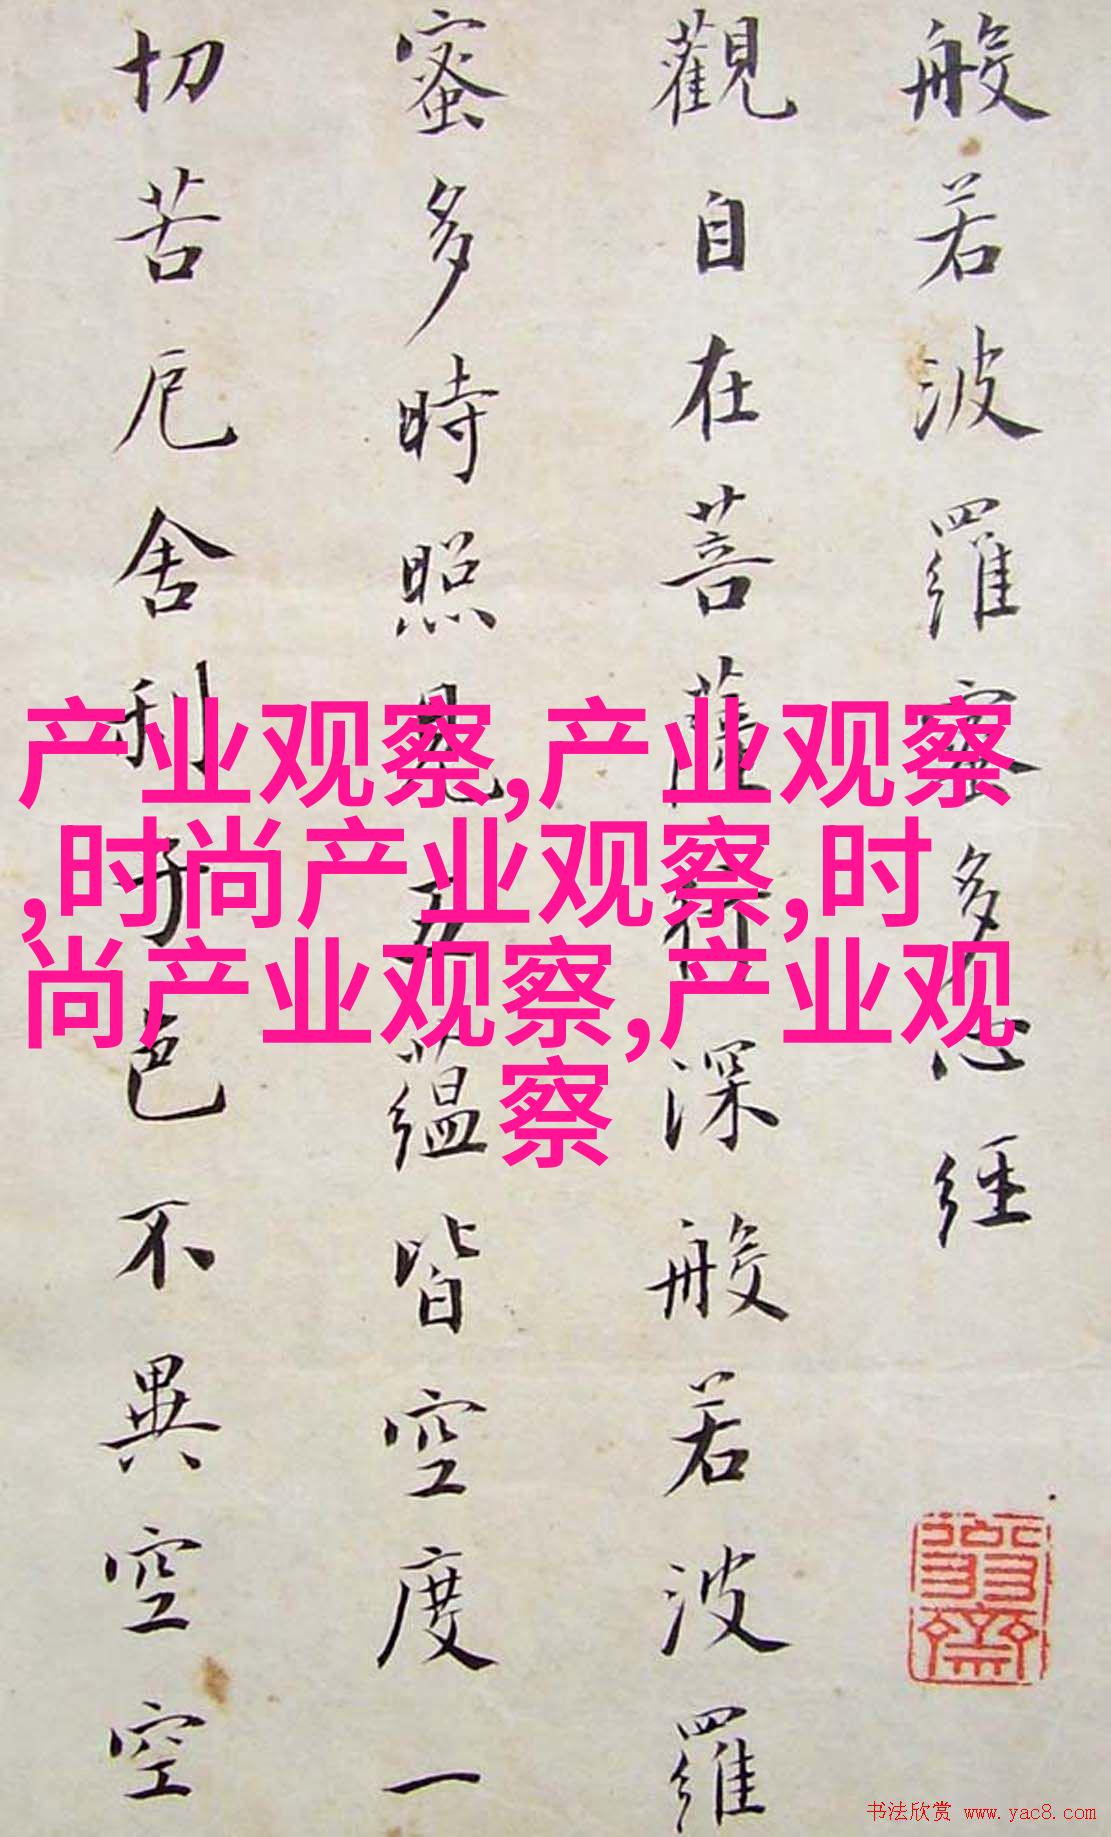 般若波羅蜜多心經
觀自在菩薩行深般若波羅
蜜多時照見五蘊皆空度一
切苦厄舍利子色不異空空
产业观察,产业观察
,时尚产业观察,时
尚产业观察,产业观
察
书法欣赏 www.yac8.com